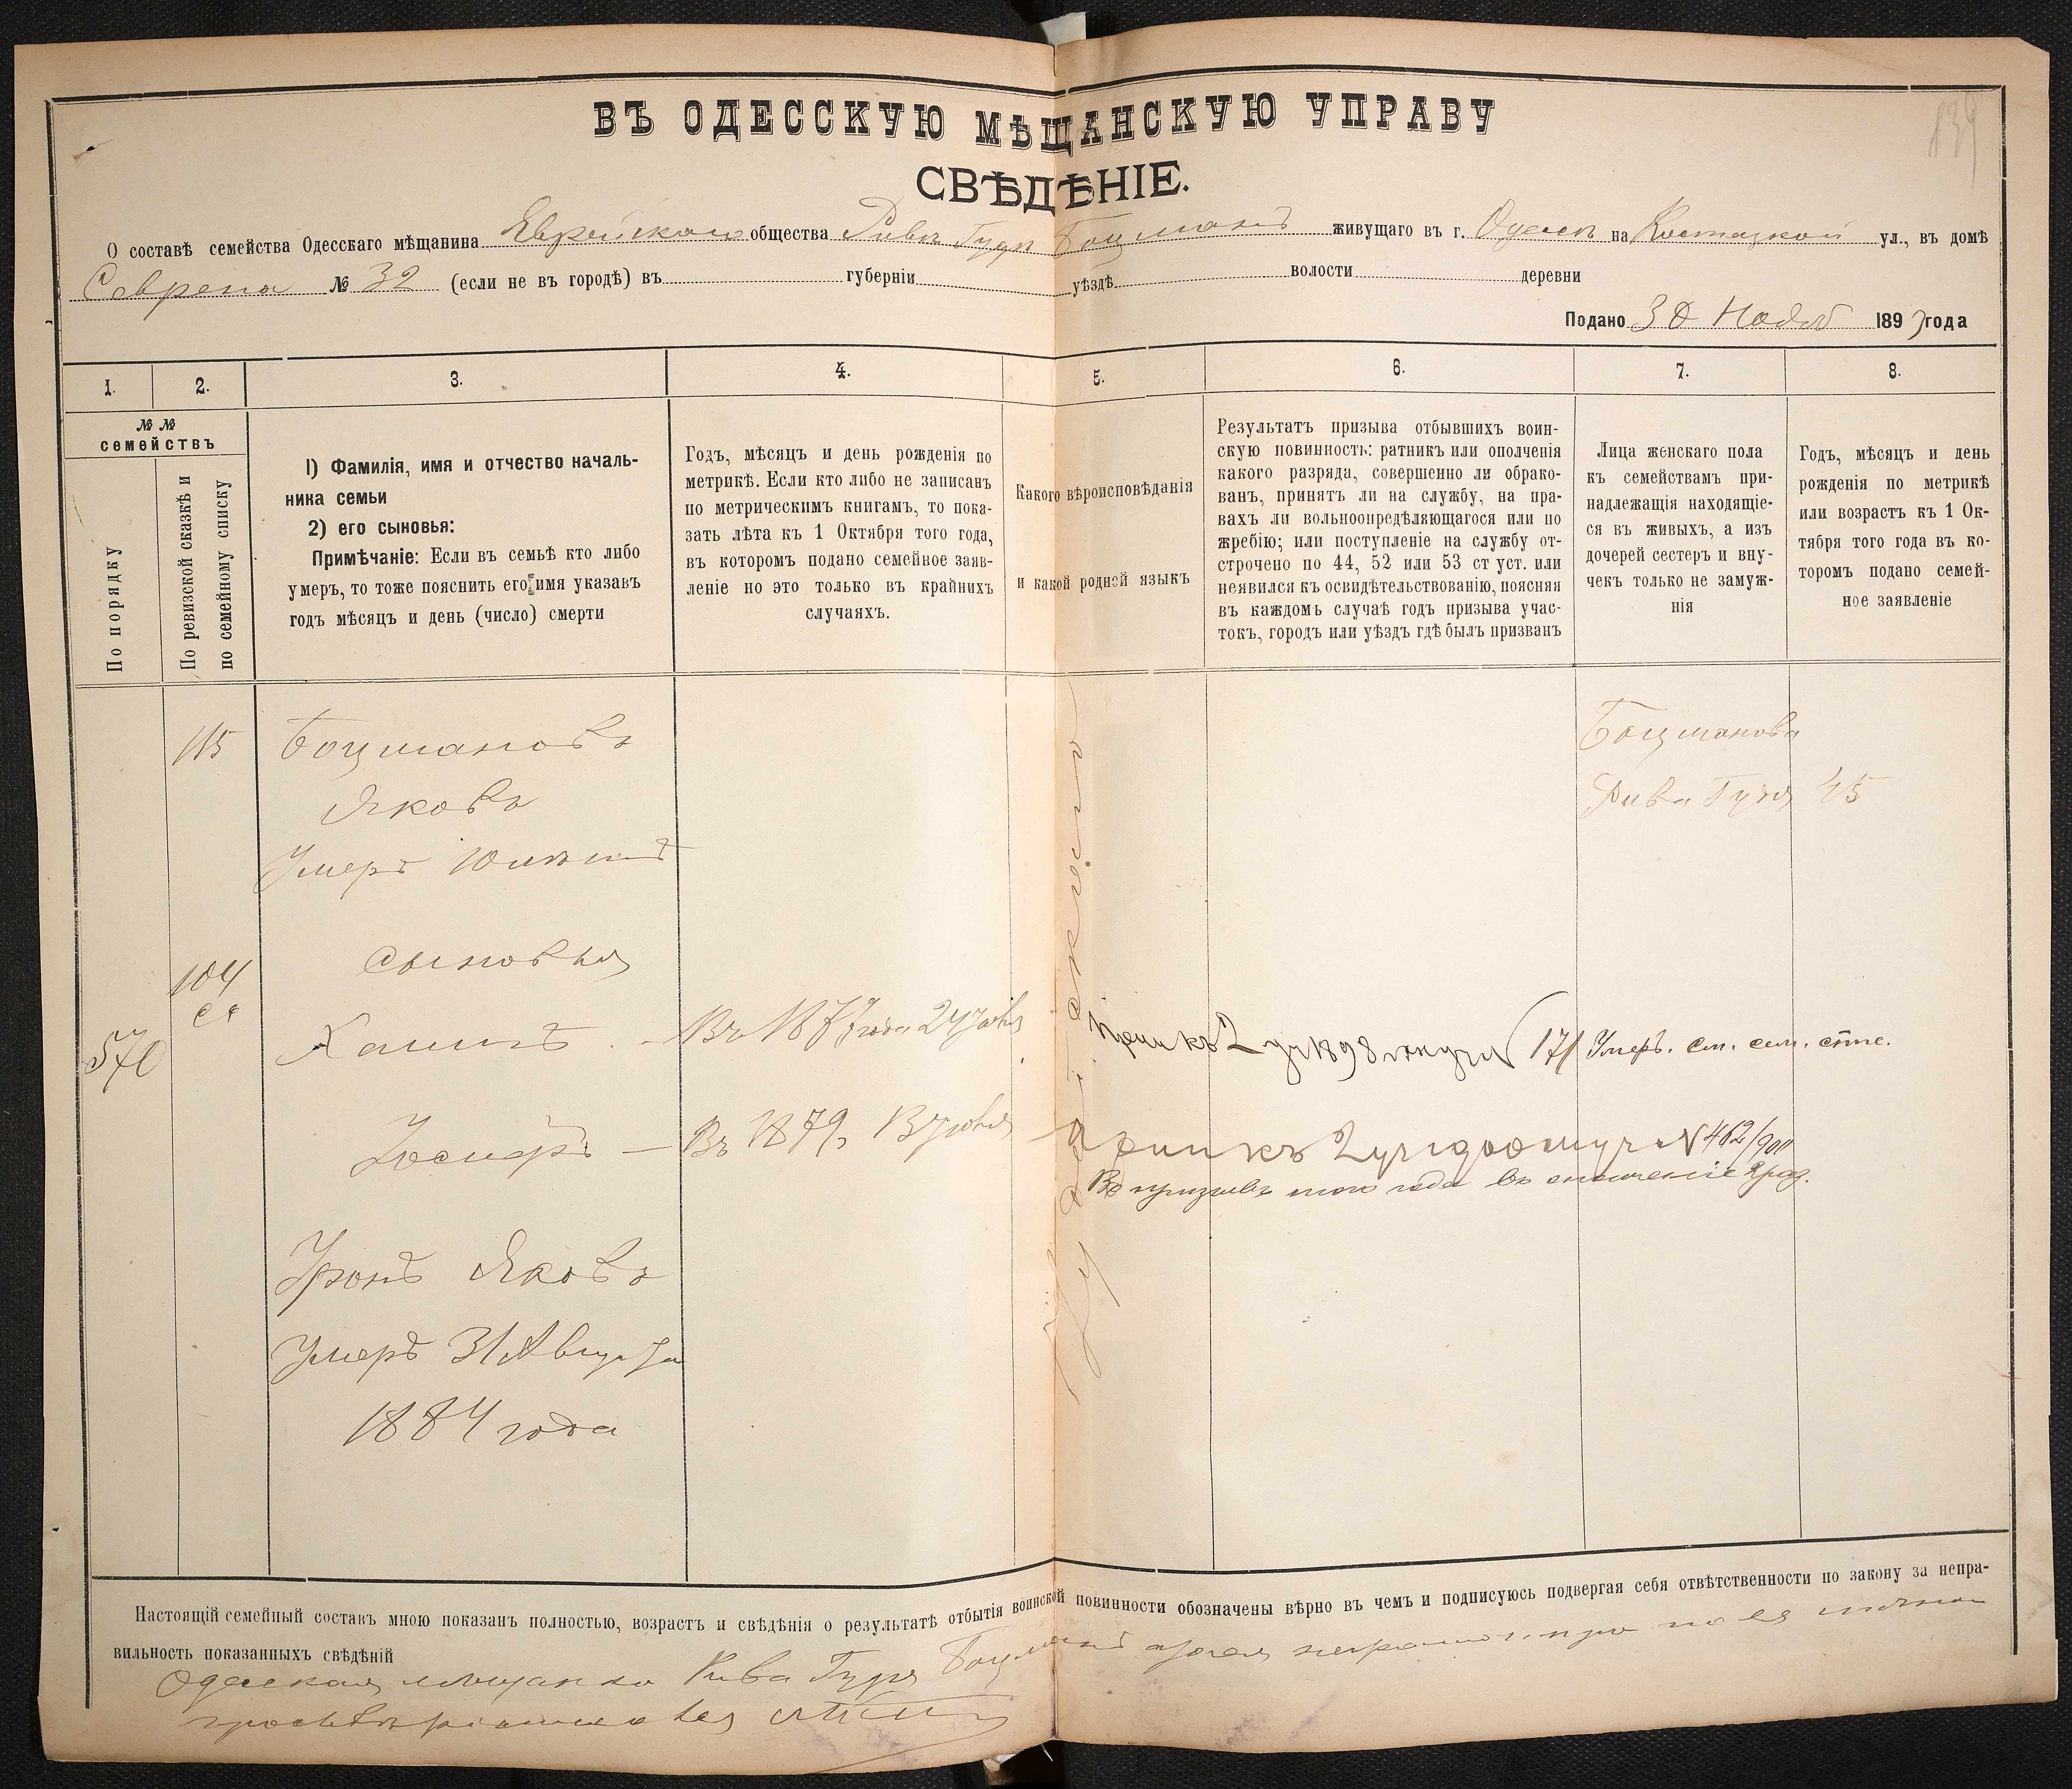 839
ВЪ ОДЕССКУЮ МѢЩАНСКУЮ УПРАВУ
СВѢДѢНІЕ.
О составѣ семейства Одесскаго мѣщанина Еврейскаго общества Рива Гудя Боцманъ живущаго въ г. Одессѣ на Костецкой ул., въ домѣ
№ 32 (если не въ городѣ) въ губерніи уѣздѣ волости деревни
Подано 30 Нояб 1897 года
1. 2. 3. 4. 5. 6. 7. 8.
№ №
семействъ
По порядку
По ревизской сказкѣ и
по семейному списку
1) Фамилія, имя и отчество началь-
ника семьи
2) его сыновья:
Примѣчаніе: Если въ семьѣ кто либо
умеръ, то тоже пояснить его имя указавъ
годъ мѣсяцъ и день (число) смерти
Годъ, мѣсяцъ и день рожденія по
метрикѣ. Если кто либо не записанъ
по метрическимъ книгамъ, то пока-
зать лѣта къ 1 Октября того года,
въ которомъ подано семейное заяв-
леніе но это только въ крайнихъ
случаяхъ.
Какого вѣроисповѣданія
и какой родной языкъ
Результатъ призыва отбывшихъ воин-
скую повинность: ратникъ или ополченія
какого разряда, совершенно ли обрако-
ванъ, принятъ ли на службу, на пра-
вахъ ли вольноопредѣляющагося или по
жребію; или поступленіе на службу от-
строчено по 44, 52 или 53 ст уст. или
неявился къ освидѣтельствованію, поясняя
въ каждомъ случаѣ годъ призыва учас-
токъ, городъ или уѣздъ гдѣ былъ призванъ
Лица женскаго пола
къ семействамъ при-
надлежащія находящіе-
ся въ живыхъ, а изъ
дочерей сестеръ и вну-
чекъ только не замуж-
нія
Годъ, мѣсяцъ и день
рожденія по метрикѣ
или возрастъ къ 1 Ок-
тября того года въ ко-
торомъ подано семей-
ное заявленіе
115 Боцмановъ
Яковъ
Умеръ
Боцманова
Рива Гудя 45
Іудейскаго
сыновья
104
570 Хаимъ - Въ 1877 года 24 Умеръ. См. сем. спис.
Іосифъ — Въ 1879
Въ призывъ того года въ ополченіе 2 раз.
Яковъ
Умеръ 31 Августа
1884 года
Настоящій семейный составъ мною показанъ полностью, возрастъ и свѣдѣнія о результатѣ отбытія воинской повинности обозначены вѣрно въ чемъ и подписуюсь подвергая себя отвѣтственности по закону за непра-
вильность показанныхъ свѣдѣній
Одесская мѣщанка Рива Гудя Боцманъ